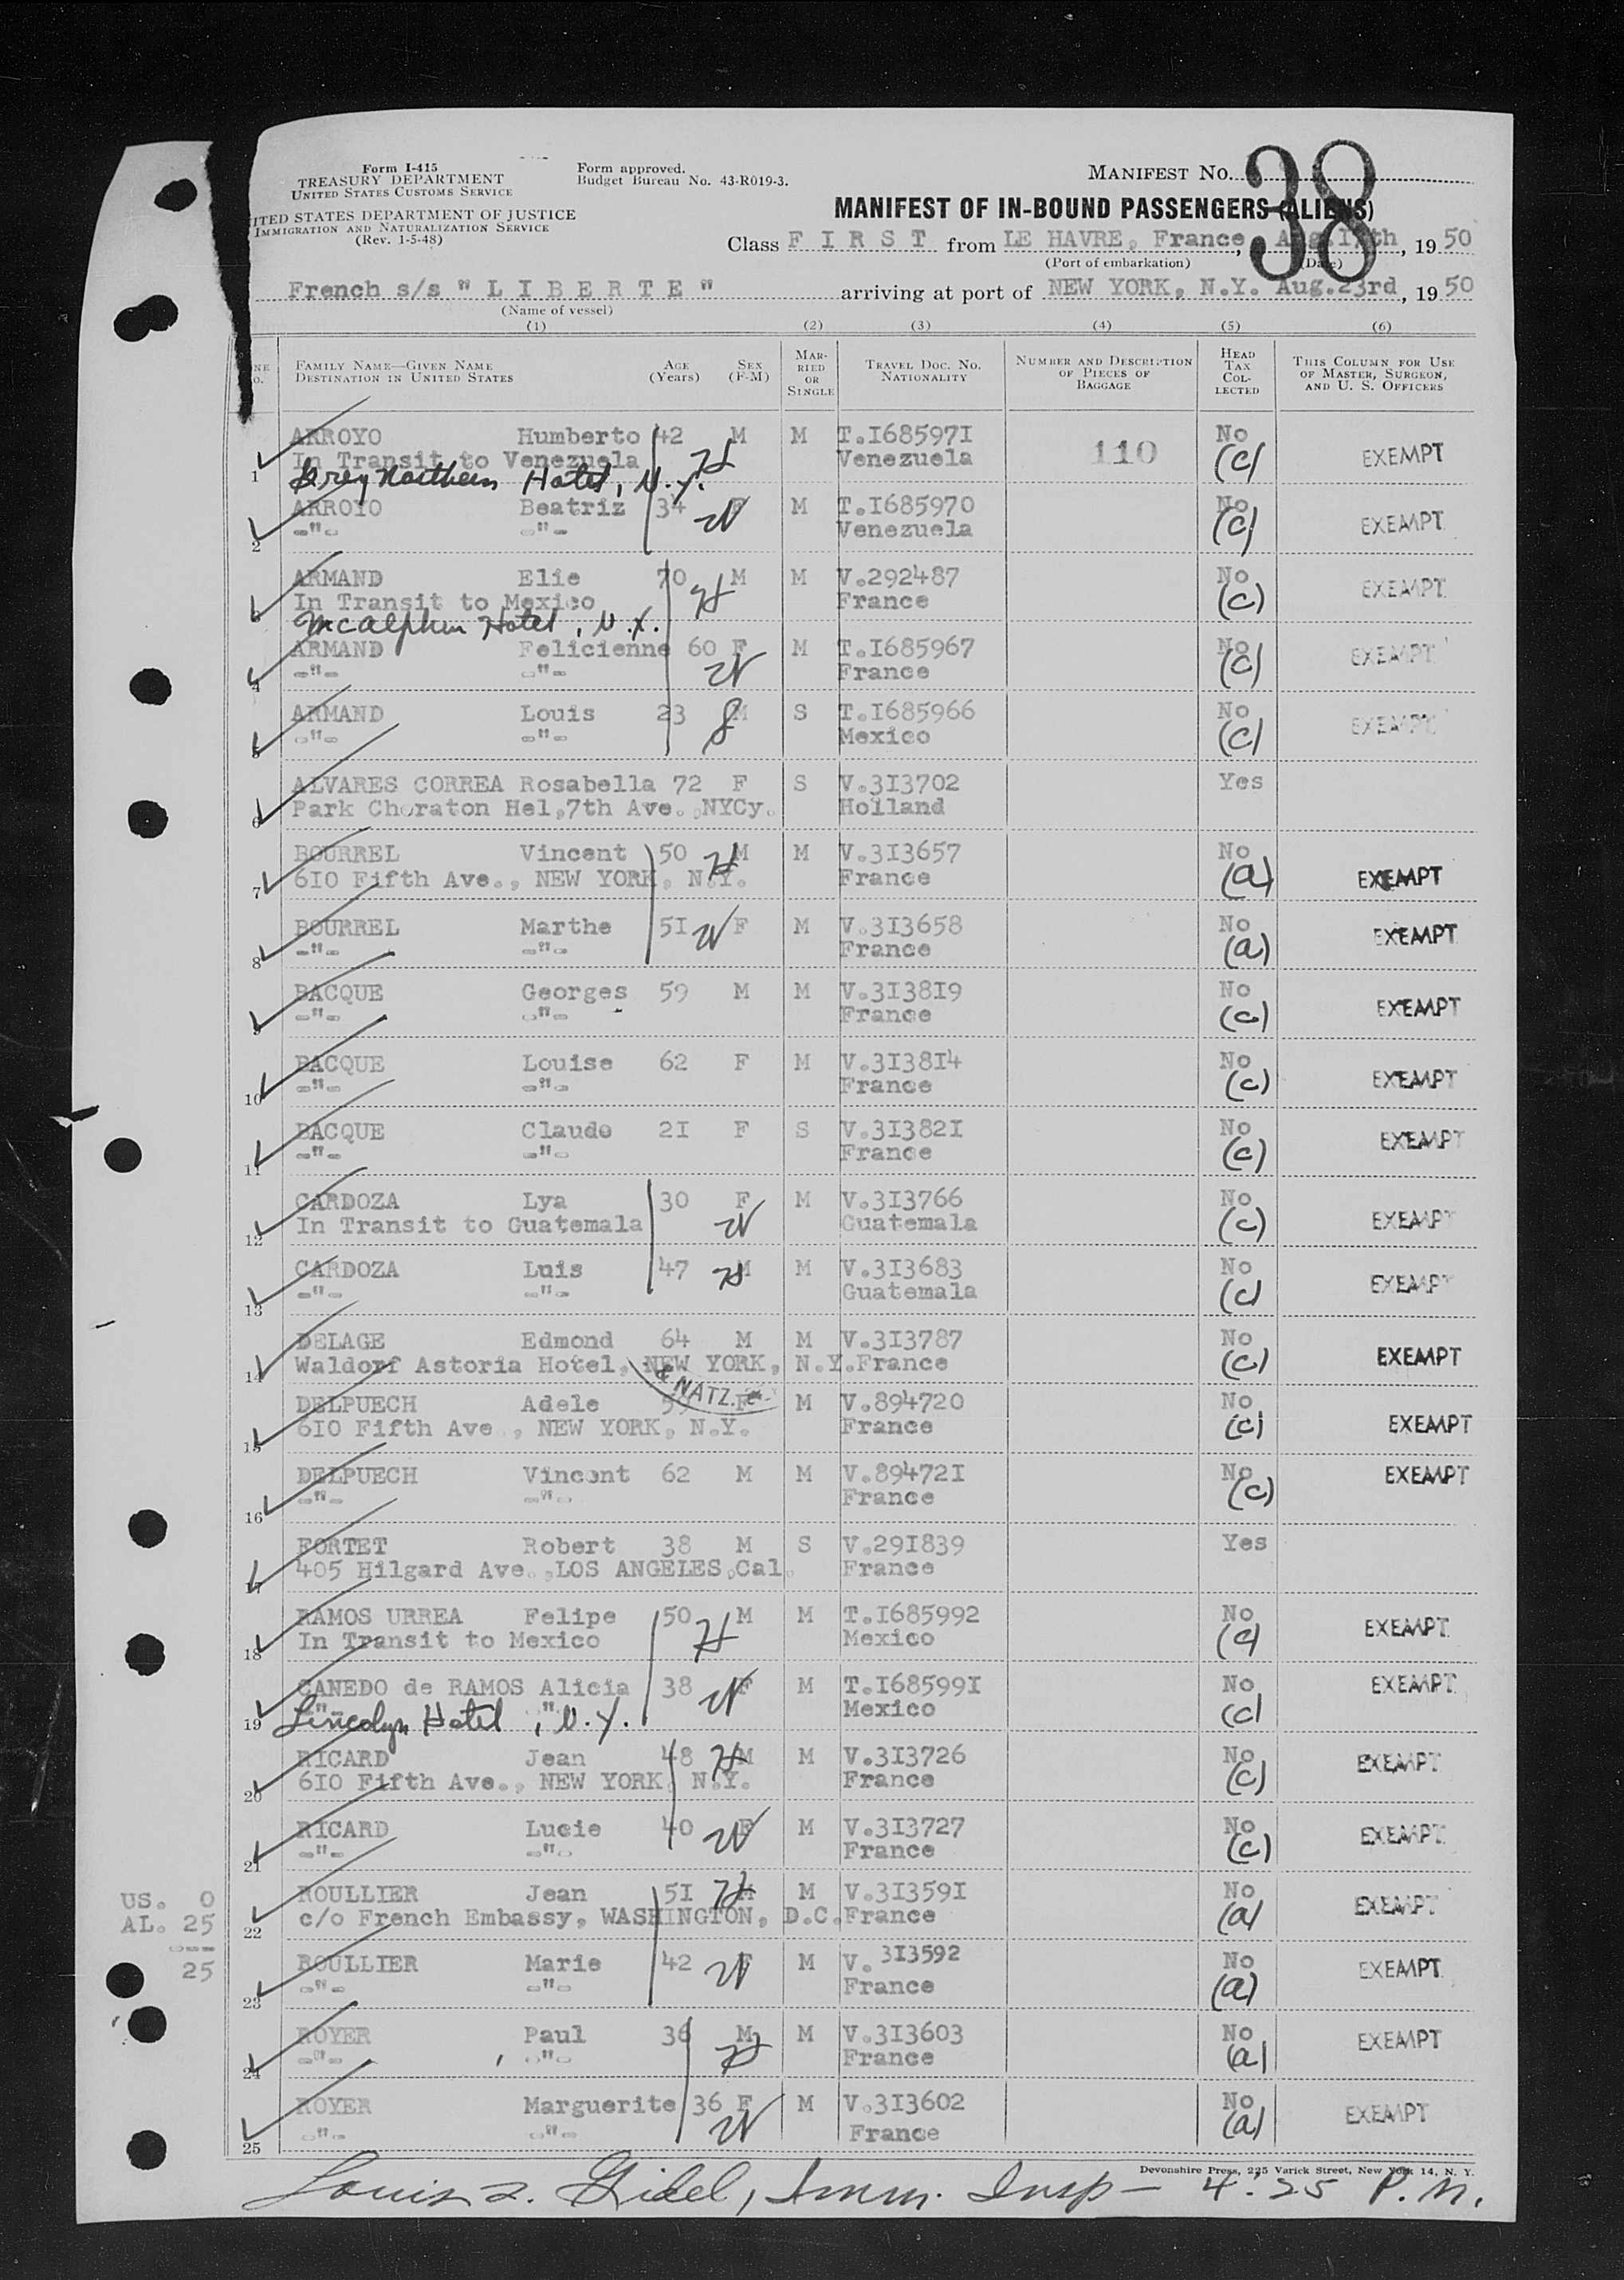 Form I-415
TREASURY DEPARTMENT
UNITED STATES CUSTOMS SERVICE
ITED STATES DEPARTMENT OF JUSTICE
IMMIGRATION AND NATURALIZATION SERVICE
(Rev. 1-5-48)
Form approved.
Budget Bureau No. 43-R019-3.
MANIFEST No. 38
MANIFEST OF IN-BOUND PASSENGERS (ALIENS)
Class F I R S T from LE HAVRE, France, Aug. th, 19 50
(Port of embarkation) (Date)
French s/s " L I B E R T E " arriving at port of NEW YORK, N.Y. Aug.23rd, 19 50
(Name of vessel)
(1) (2) (3) (4) (5) (6)
NE O. FAMILY NAME—GIVEN NAME DESTINATION IN UNITED STATES AGE (Years) SEX (F-M) MARRIED OR SINGLE TRAVEL DOC. No. NATIONALITY NUMBER AND DESCRIPTION OF PIECES OF BAGGAGE HEAD TAX COLLECTED THIS COLUMN FOR USE OF MASTER, SURGEON, AND U. S. OFFICERS
ARROYO Humberto 42 M M T.I68597I 110 No
1 In Transit to Venezuela H Venezuela (c) EXEMPT
Grey Northern Hotel, N.Y.
ARROYO Beatriz 34 F M T.I685970 No
2 -"- -"- W Venezuela (c) EXEMPT
ARMAND Elie 70 M M V.292487 No
In Transit to Mexico H France (c) EXEMPT
McAlphin Hotel, N.Y.
ARMAND Felicienne 60 F M T.I685967 No
4 -"- -"- W France (c) EXEMPT
ARMAND Louis 23 M S T.I685966 No
5 -"- -"- Mexico (c) EXEMPT
ALVARES CORREA Rosabella 72 F S V.3I3702 Yes
6 Park Choraton Hel,7th Ave.,NYCy. Holland
BOURREL Vincent 50 H M M V.3I3657 No
7 6I0 Fifth Ave., NEW YORK, N.Y. France (a) EXEMPT
BOURREL Marthe 5I W F M V.3I3658 No
8 -"- -"- France (a) EXEMPT
BACQUE Georges 59 M M V.3I38I9 No
9 -"- -"- France (c) EXEMPT
BACQUE Louise 62 F M V.3I38I4 No
10 -"- -"- France (c) EXEMPT
BACQUE Claude 2I F S V.3I382I No
11 -"- -"- France (c) EXEMPT
CARDOZA Lya 30 F M V.3I3766 No
12 In Transit to Guatemala W Guatemala (c) EXEMPT
CARDOZA Luis 47 H M M V.3I3683 No
13 -"- -"- Guatemala (c) EXEMPT
DELAGE Edmond 64 M M V.3I3787 No
14 Waldorf Astoria Hotel, NEW YORK, N.Y.France (c) EXEMPT
& NATZ.
DELPUECH Adele F M V.894720 No
15 6I0 Fifth Ave , NEW YORK, N.Y. France (c) EXEMPT
DELPUECH Vincent 62 M M V.89472I No
16 -"- -"- France (c) EXEMPT
FORTET Robert 38 M S V.29I839 Yes
17 405 Hilgard Ave.,LOS ANGELES,Cal. France
RAMOS URREA Felipe 50 M M T.I685992 No
18 In Transit to Mexico H Mexico (c) EXEMPT
CANEDO de RAMOS Alicia 38 W F M T.I68599I No
19 -"- -"- Mexico (c) EXEMPT
Lincolyn Hotel, N.Y.
RICARD Jean 48 H M M V.3I3726 No
20 6I0 Fifth Ave., NEW YORK, N.Y. France (c) EXEMPT
RICARD Lucie 40 W F M V.3I3727 No
21 -"- -"- France (c) EXEMPT
ROULLIER Jean 5I H M M V.3I359I No
22 c/o French Embassy, WASHINGTON, D.C.France (a) EXEMPT
US. 0
AL. 25
---
25
ROULLIER Marie 42 W F M V. 313592 No
23 -"- -"- France (a) EXEMPT
ROYER Paul 36 M M V.3I3603 No
24 -"- -"- H France (a) EXEMPT
ROYER Marguerite 36 F M V.3I3602 No
25 -"- -"- W France (a) EXEMPT
Devonshire Press, 225 Varick Street, New York 14, N. Y.
Louis L. Gidel, Imm. Insp — 4:25 P.M.